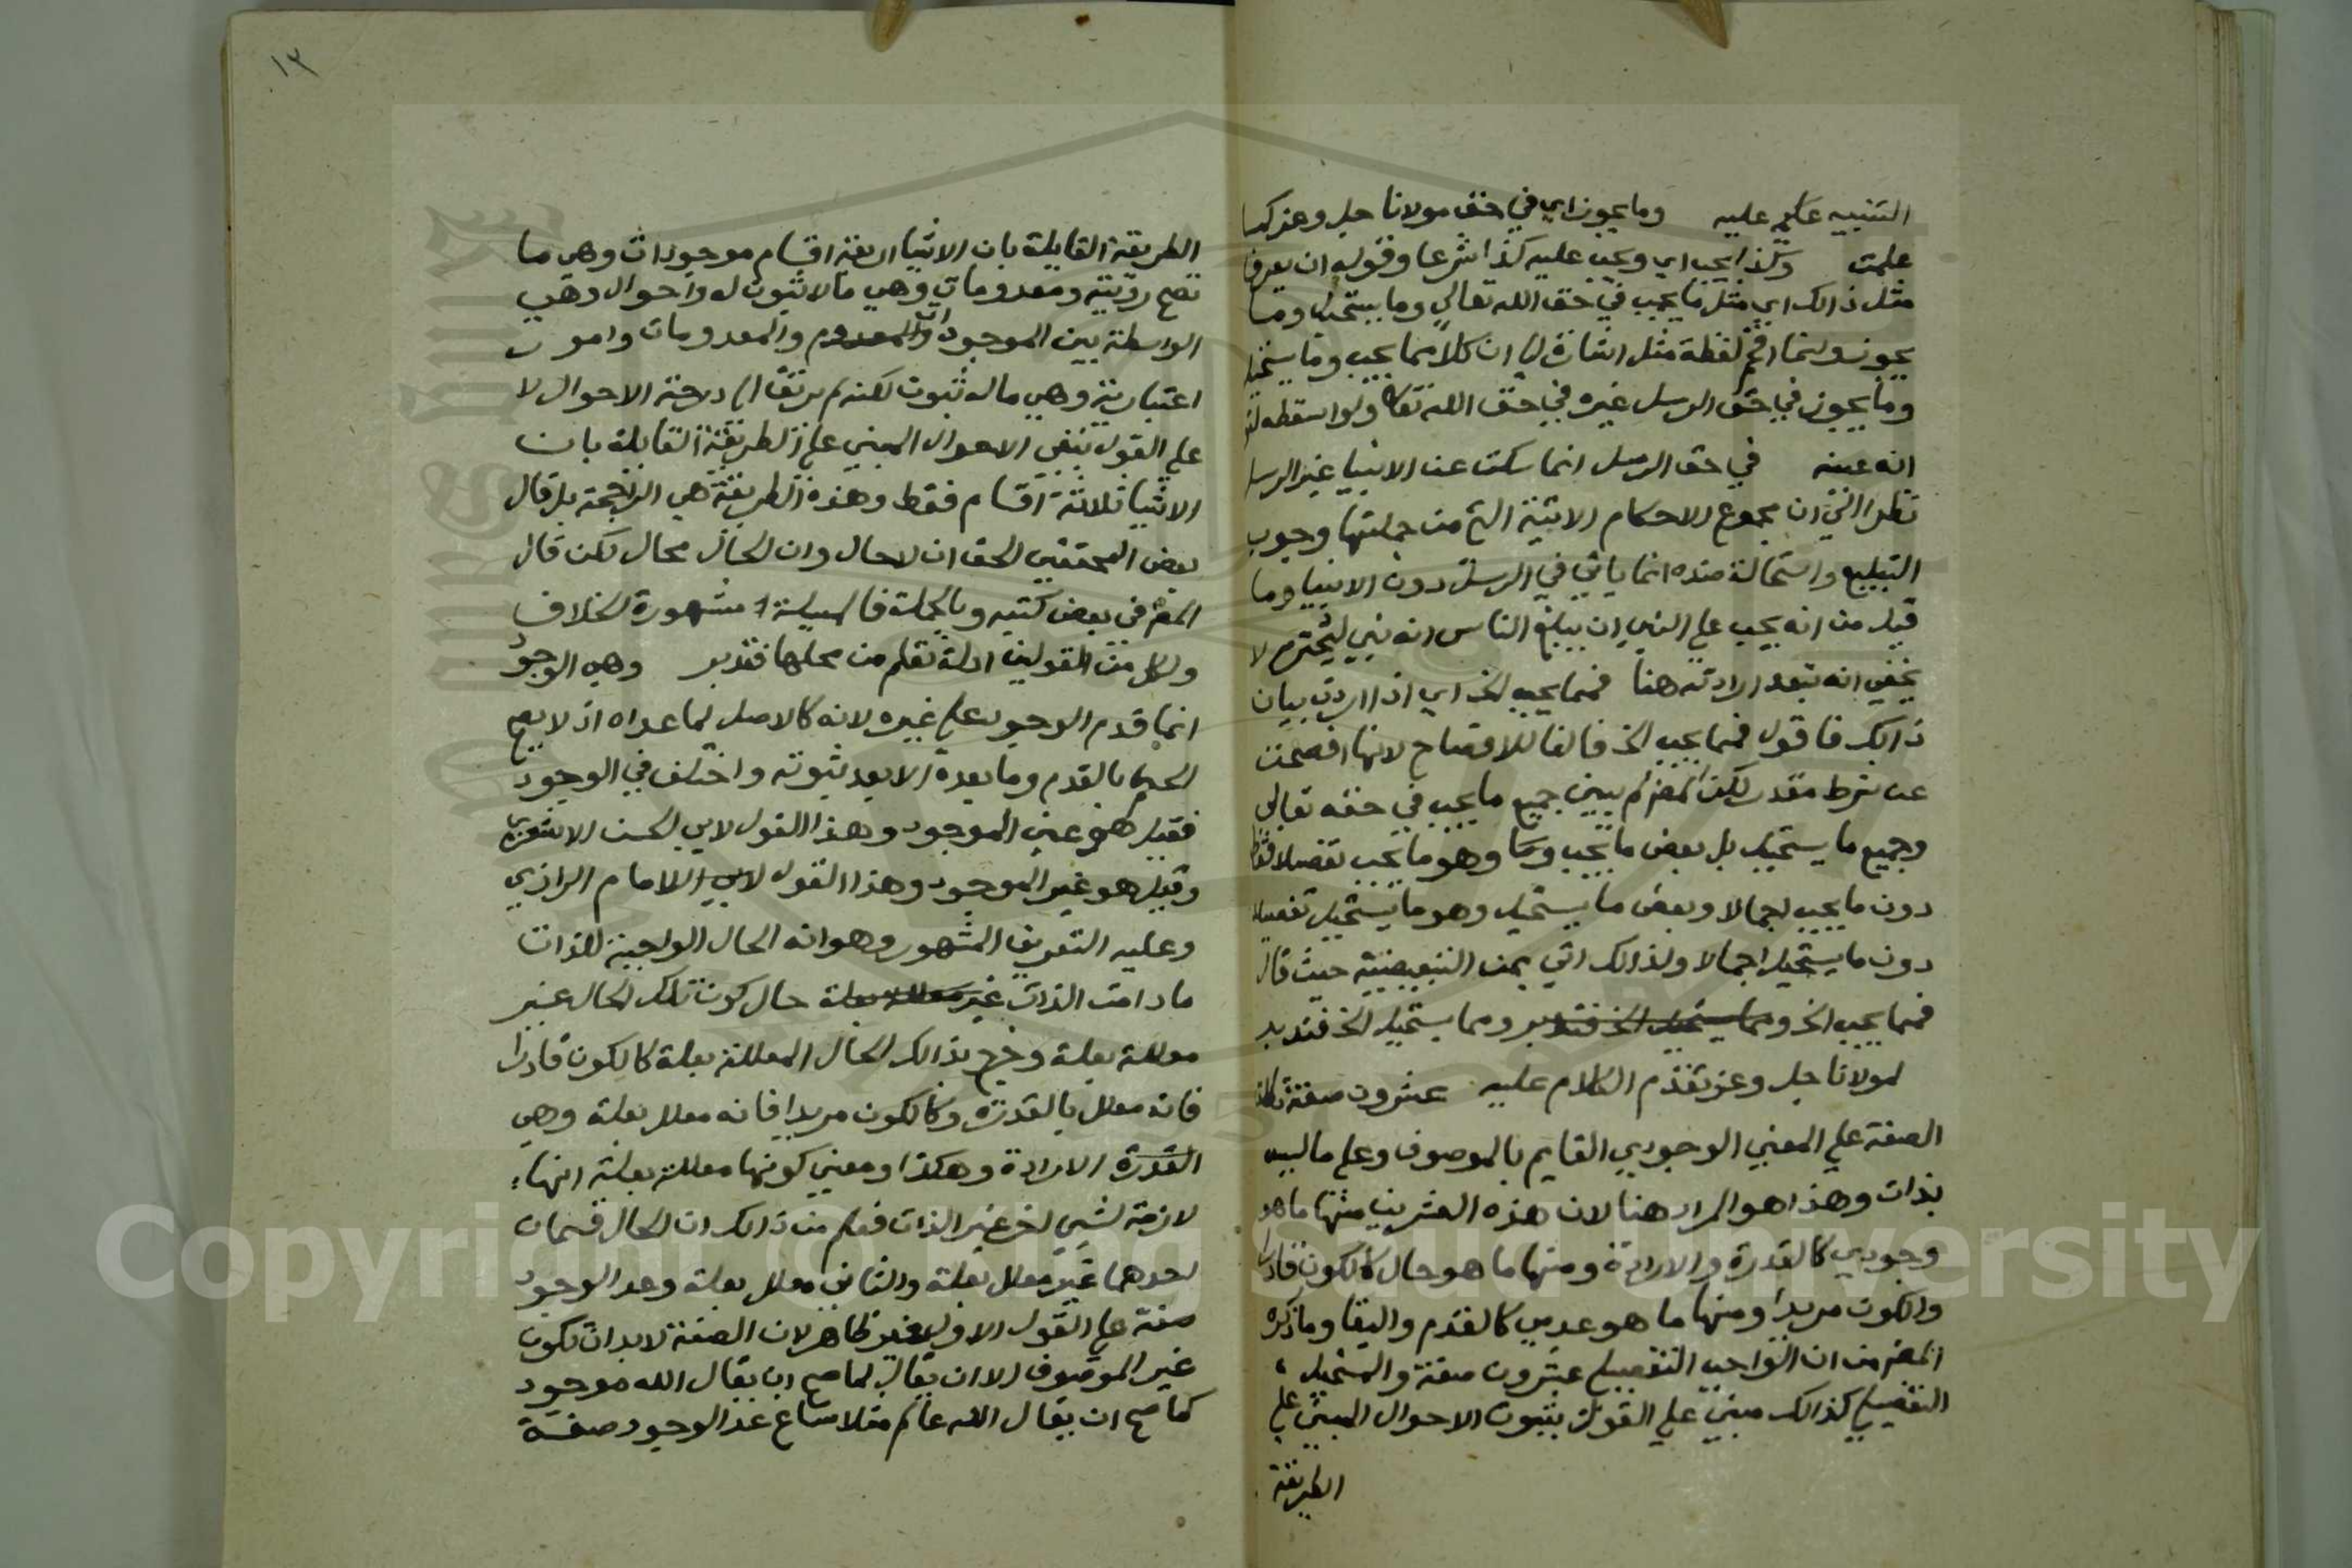 التنبيه عليه وما يجوز اي في حق مولانا جل وعز كما
علمت وكذا يجب اي ويجب عليه كذا شرعا وقوله ان يعرف
مثل ذالك اي مثل ما يجب في حق الله تعالي وما يستحيل وما
يجوز وانما اقحم لفظة مثل اشارة الي ان كلا مما يجب وما يستحيل
وما يجوز في حق الرسل غيره في حق الله تعالي ولو اسقطه
انه عينه في حق الرسل انما سكت عن الانبيا غير الرسل
نظرا الي ان مجموع الاحكام الاتية التي من جملتها وجوب
التبليغ واستحالة ضده انما ياتي في الرسل دون الانبيا وما
قيل من انه يجب علي النبي ان يبلغ الناس انه نبي ليحترم لا
يخفي انه تبعد ارادته هنا فمما يجب الخ اي اذا اردت بيان
ذالك فاقول فمما يجب الخ فالفا للافصاح لانها افصحت
عن شرط مقدر لكن المص لم يبين جميع ما يجب في حقه تعالي
وجميع ما يستحيل بل بعض ما يجب وهو ما يجب تفصيلا فقط
دون ما يجب اجمالا وبعض ما يستحيل وهو ما يستحيل تفصيلا
دون ما يستحيل اجمالا ولذالك اتي بمن التبعيضية حيث قال
فمما يجب الخ ومما يستحيل الخ فتدبر ومما يستحيل الخ فتدبر
لمولانا جل وعز تقدم الكلام عليه عشرون صفة تطلق
الصفة علي المعني الوجودي القايم بالموصوف وعلي ما ليس
بذات وهذا هو المراد هنا لان هذه العشرين منها ما هو
وجودي كالقدرة والارادة ومنها ما هو حال كالكون قادرا
والكون مريدا ومنها ما هو عدمي كالقدم والبقا وما ذكره
المص من ان الواجب التفصيلي عشرون صفة والمستحيل
التفصيلي كذالك مبني علي القول بثبوت الاحوال المبني علي
الطريقة
١٣
الطريقة القايلة بان الاشيا اربعة اقسام موجودات وهي ما
تصح رؤيته ومعدومات وهي ما لا ثبوت له واحوال وهي
الواسطة بين الموجودات والمعدوم والمعدومات وامور
اعتبارية وهي ما له ثبوت لكنه لم يرتق الي درجة الاحوال لا
علي القول بنفي الاحوال المبني علي الطريقة القايلة بان
الاشيا ثلاثة اقسام فقط وهذه الطريقة هي الراجحة بل قال
بعض المحققين الحق ان لا حال وان الحال محال لكن قال
المص في بعض كتبه وبالجملة فالمسيلة مشهورة الخلاف
ولكل من القولين ادلة تعلم من محلها فتدبر وهي الوجود
انما قدم الوجود علي غيره لانه كالاصل لما عداه اذ لا يصح
الحكم بالقدم وما بعده الا بعد ثبوته واختلف في الوجود
فقيل هو عين الموجود وهذا القول لابي الحسن الاشعري
وقيل هو غير الموجود وهذا القول للامام الرازي
وعليه التعريف المشهور وهو انه الحال الواجبة للذات
ما دامت الذات غير معللة بعلة حال كون تلك الحال غير
معللة بعلة وخرج بذالك الحال المعللة بعلة كالكون قادرا
فانه معلل بالقدرة وكالكون مريدا فانه معلل بعلة وهي
القدرة الارادة وهكذا ومعني كونها معللة بعلة انها
لازمة لشيي اخر غير الذات فعلم من ذالك ان الحال قسمان
احدهما غير معلل بعلة والثاني معلل بعلة وعد الوجود
صفة علي القول الاول غير ظاهر لان الصفة لابد ان تكون
غير الموصوف الا ان يقال لما صح ان يقال الله موجود
كما صح ان يقال الله عالم مثلا ساغ عد الوجود صفة
Copyright © King Saud University